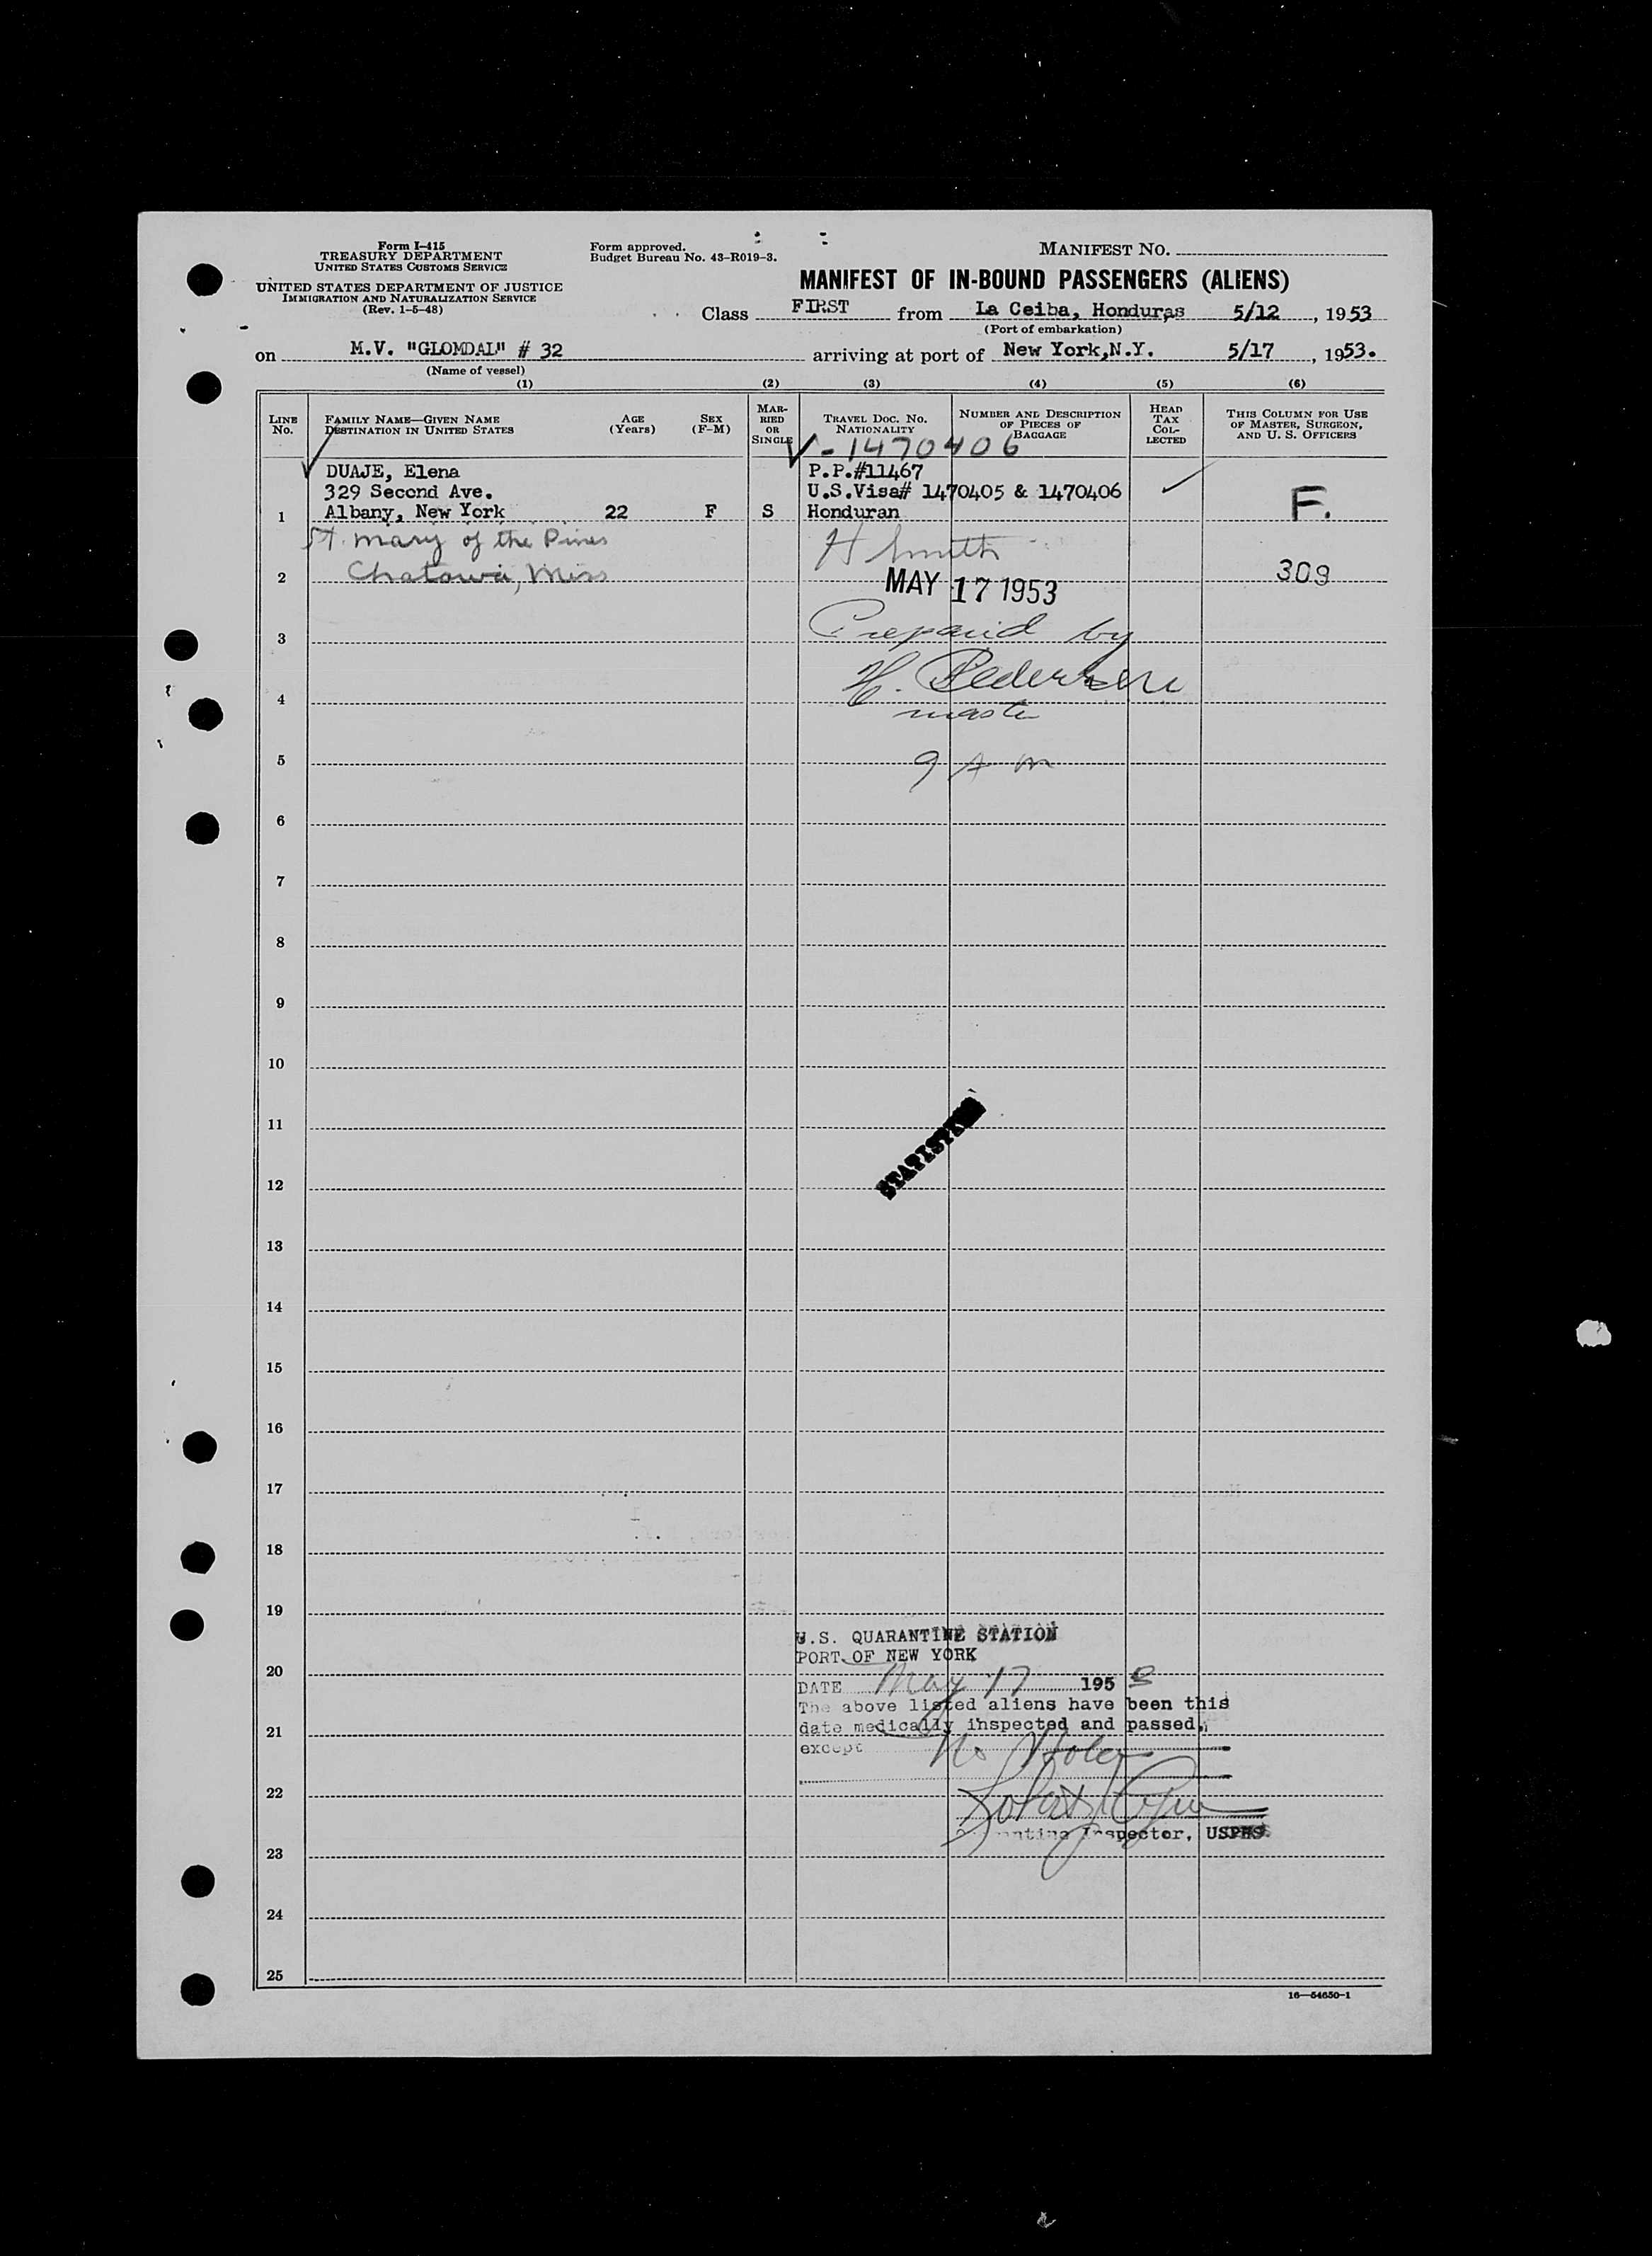 Form I-415
TREASURY DEPARTMENT
UNITED STATES CUSTOMS SERVICE
UNITED STATES DEPARTMENT OF JUSTICE
IMMIGRATION AND NATURALIZATION SERVICE
(Rev. 1-5-48)
Form approved.
Budget Bureau No. 43-R019-3.
MANIFEST NO.
MANIFEST OF IN-BOUND PASSENGERS (ALIENS)
Class FIRST from La Ceiba, Honduras 5/12, 1953
(Port of embarkation)
on M.V. "GLOMDAL" # 32 arriving at port of New York,N.Y. 5/17, 1953.
(Name of vessel)
(1) (2) (3) (4) (5) (6)
LINE No.
FAMILY NAME—GIVEN NAME
DESTINATION IN UNITED STATES
AGE (Years)
SEX (F-M)
MARRIED OR SINGLE
TRAVEL DOC. NO. NATIONALITY
NUMBER AND DESCRIPTION OF PIECES OF BAGGAGE
HEAD TAX COLLECTED
THIS COLUMN FOR USE OF MASTER, SURGEON, AND U. S. OFFICERS
V-1470406
DUAJE, Elena P.P.#11467
329 Second Ave. U.S.Visa# 1470405 & 1470406
1 Albany, New York 22 F S Honduran F.
St. Mary of the Pines H Smith
2 Chatawa, Miss MAY 17 1953 309
3 Prepaid by
4 H. Pedersen
master
5 9 A m
6
7
8
9
10
11
STATISTICS
12
13
14
15
16
17
18
19
U.S. QUARANTINE STATION
PORT OF NEW YORK
20
DATE May 17 1953
The above listed aliens have been this
21 date medically inspected and passed,
except No
22
Quarantine Inspector, USPHS
23
24
25
16—54650-1